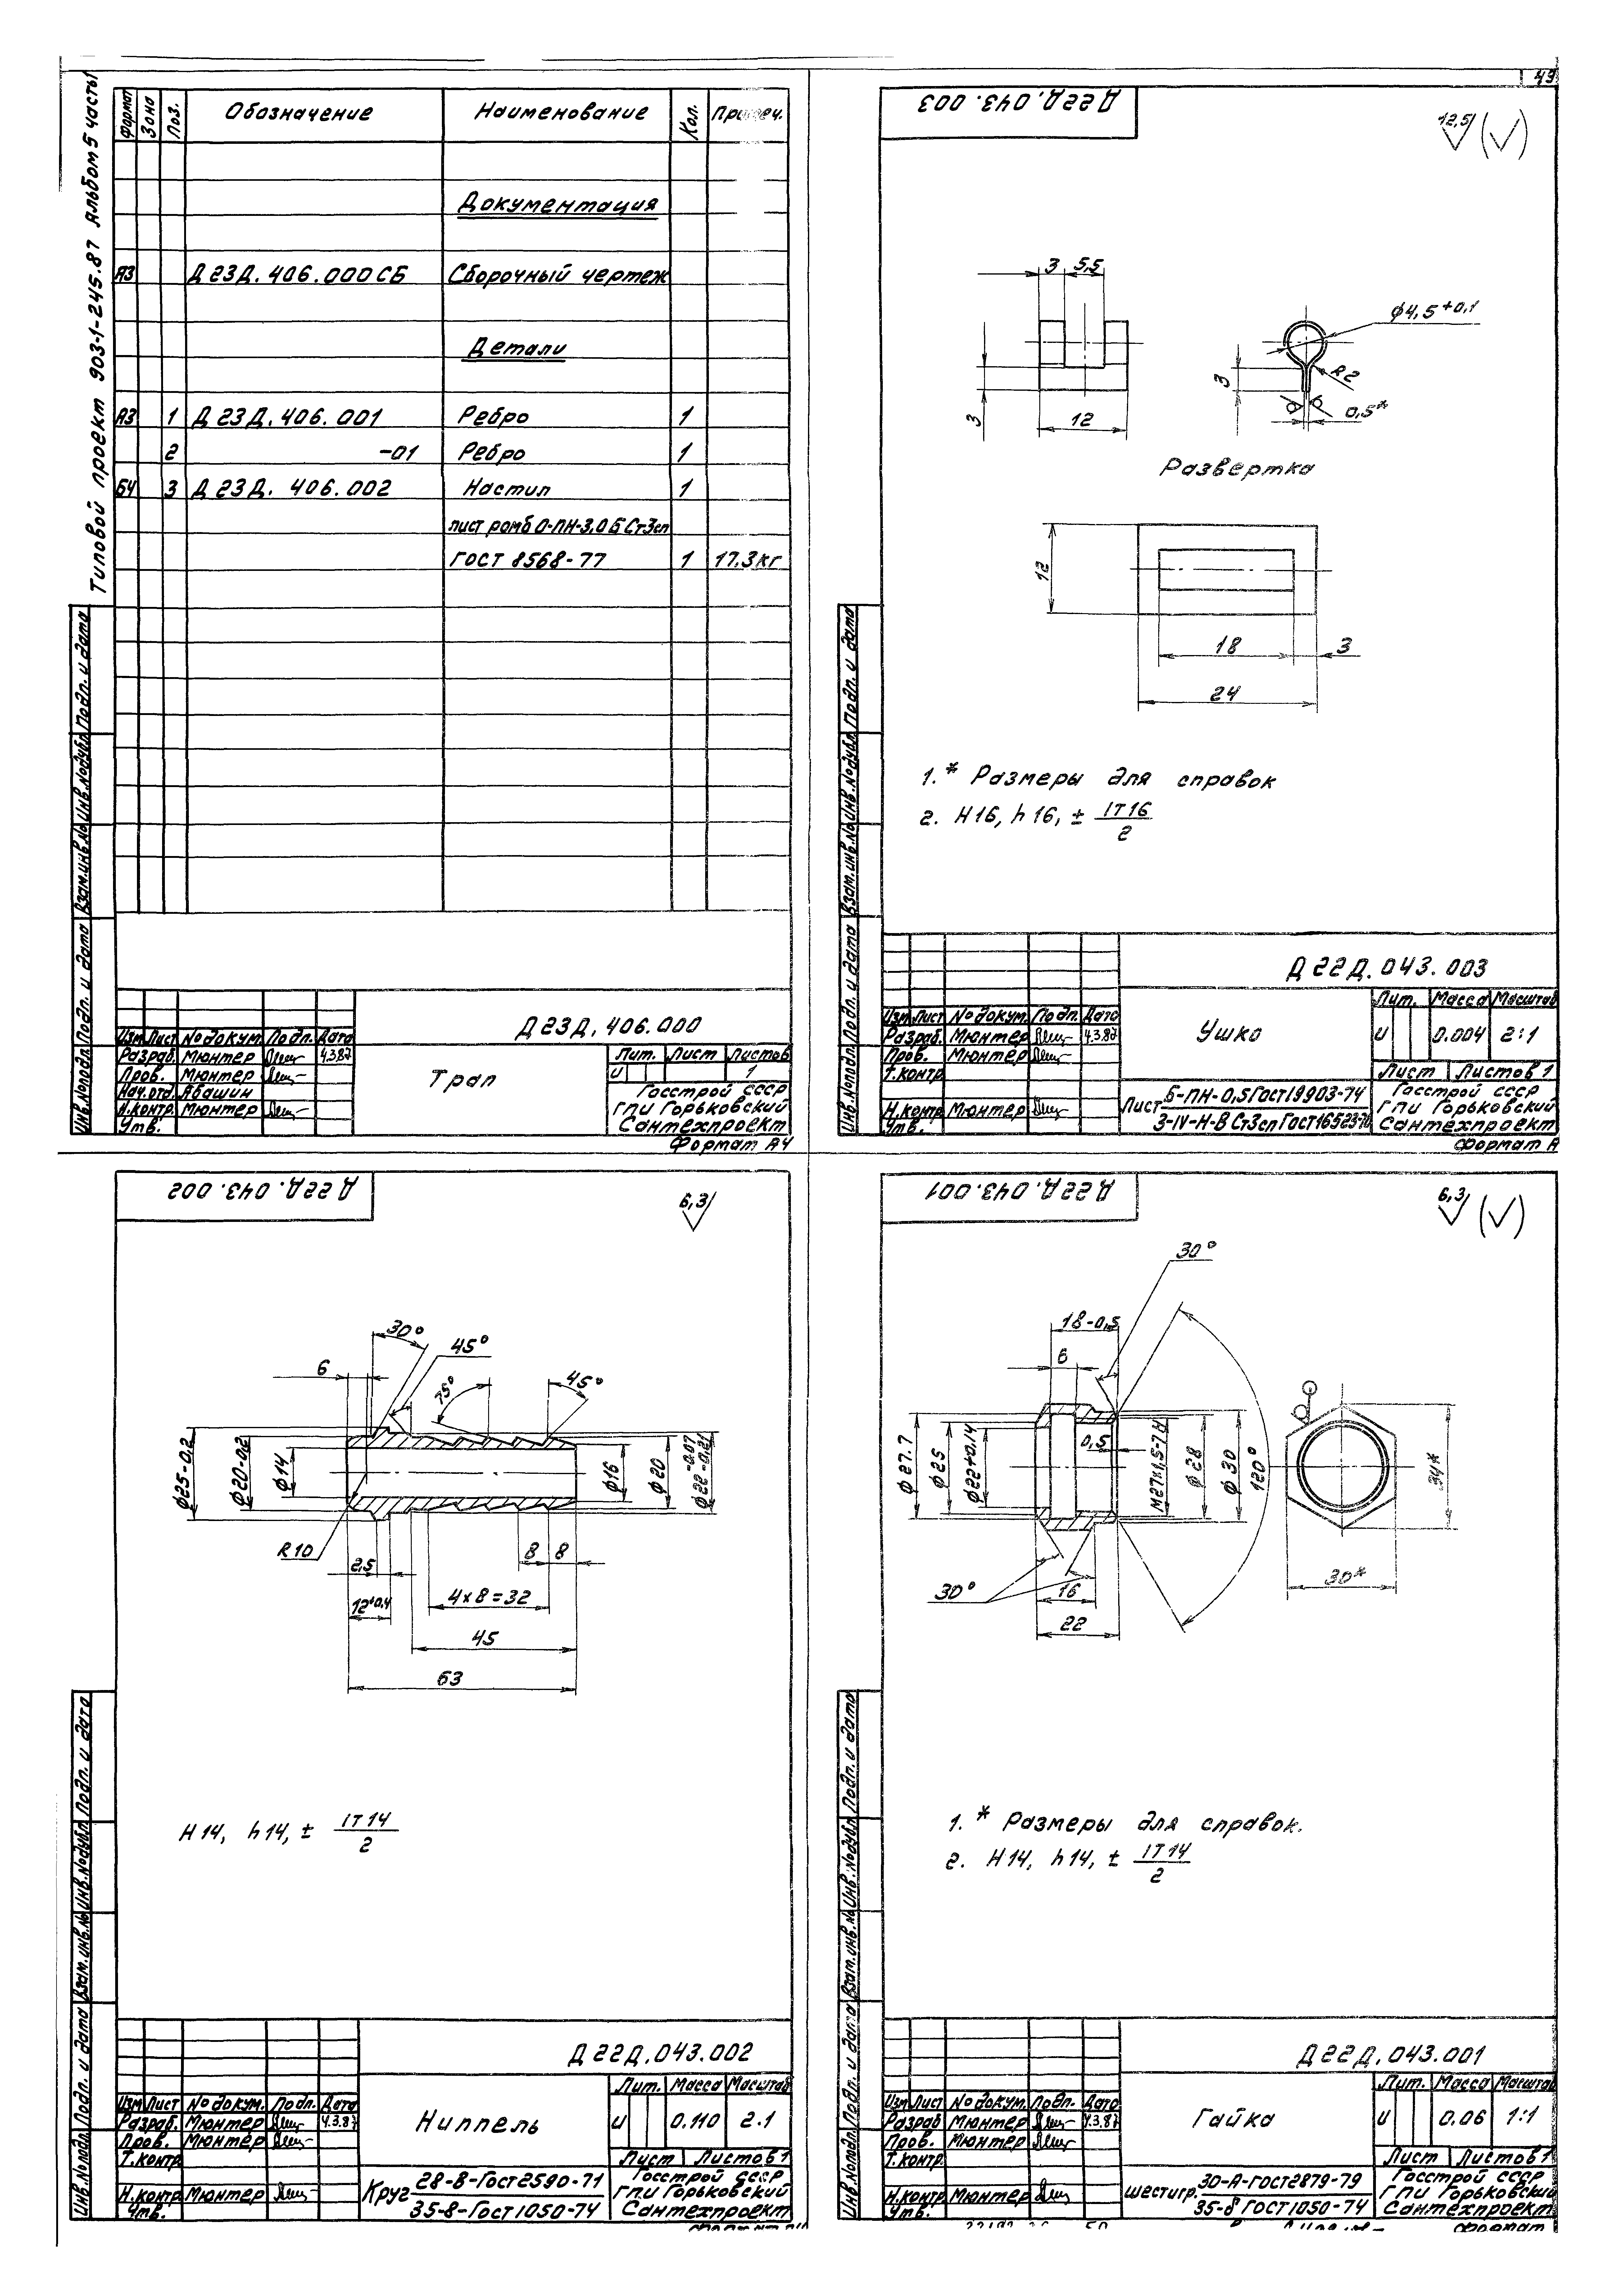 43
Типовой проект 903-1-245.87 Альбом 5 часть 1
Формат Зона Поз. Обозначение Наименование Кол. Примеч.
Документация
А3 Д23Д.406.000СБ Сборочный чертеж
Детали
А3 1 Д23Д.406.001 Ребро 1
2 -01 Ребро 1
БЧ 3 Д23Д.406.002 Настил 1
лист ромб О-ПН-3,0 Б Ст3сп
ГОСТ 8568-77 1 17,3кг
Инв.№подл. Подп. и дата Взам.инв.№ Инв.№дубл. Подп. и дата
Д23Д.406.000
Изм Лист № докум. Подп. Дата
Разраб. Мюнтер 4.3.87
Пров. Мюнтер
Нач.отд. Абашин
Н.контр. Мюнтер
Утв.
Трап
Лит. Лист Листов
И 1
Госстрой СССР
ГПИ Горьковский
Сантехпроект
Формат А4
Д22Д.043.003
12,5 (√)
3 5,5
φ4,5+0,1
R2
3
3
12
0,5*
Развертка
12
18 3
24
1.* Размеры для справок
2. H16, h16, ± IT16/2
Инв.№подл. Подп. и дата Взам.инв.№ Инв.№дубл. Подп. и дата
Д22Д.043.003
Изм Лист № докум. Подп. Дата
Разраб. Мюнтер 4.3.87
Пров. Мюнтер
Т.контр
Н.контр Мюнтер
Утв.
Ушко
Лит. Масса Масштаб
И 0.004 2:1
Лист Листов 1
Лист Б-ПН-0,5 Гост 19903-74
3-IV-Н-В Ст3сп Гост 16523-70
Госстрой СССР
ГПИ Горьковский
Сантехпроект
Формат А
Д22Д.043.002
6,3
30°
45°
6
75°
45°
φ25-0,2
φ20-0,2
φ14
φ16
φ20
φ22 -0,07 -0,21
R10
2,5
8 8
12+0,4
4×8=32
45
63
H14, h14, ± IT14/2
Инв.№подл. Подп. и дата Взам.инв.№ Инв.№дубл. Подп. и дата
Д22Д.043.002
Изм Лист № докум. Подп. Дата
Разраб. Мюнтер 4.3.87
Пров. Мюнтер
Т.контр
Н.контр Мюнтер
Утв.
Ниппель
Лит. Масса Масштаб
И 0.110 2:1
Лист Листов 1
Круг 28-В-Гост 2590-71
35-8-Гост 1050-74
Госстрой СССР
ГПИ Горьковский
Сантехпроект
Д22Д.043.001
6,3 (√)
30°
18-0,5
6
0,5
φ27.7
φ25
φ22+0,14
М27×1,5-7Н
φ28
φ30
120°
34*
30*
30°
16
22
1.* Размеры для справок.
2. H14, h14, ± IT14/2
Инв.№подл. Подп. и дата Взам.инв.№ Инв.№дубл. Подп. и дата
Д22Д.043.001
Изм Лист № докум. Подп. Дата
Разраб Мюнтер 4.3.87
Пров. Мюнтер
Т.контр
Н.контр Мюнтер
Утв.
Гайка
Лит. Масса Масштаб
И 0.06 1:1
Лист Листов 1
шестигр. 30-А-гост 2879-79
35-8 ГОСТ 1050-74
Госстрой СССР
ГПИ Горьковский
Сантехпроект
Формат